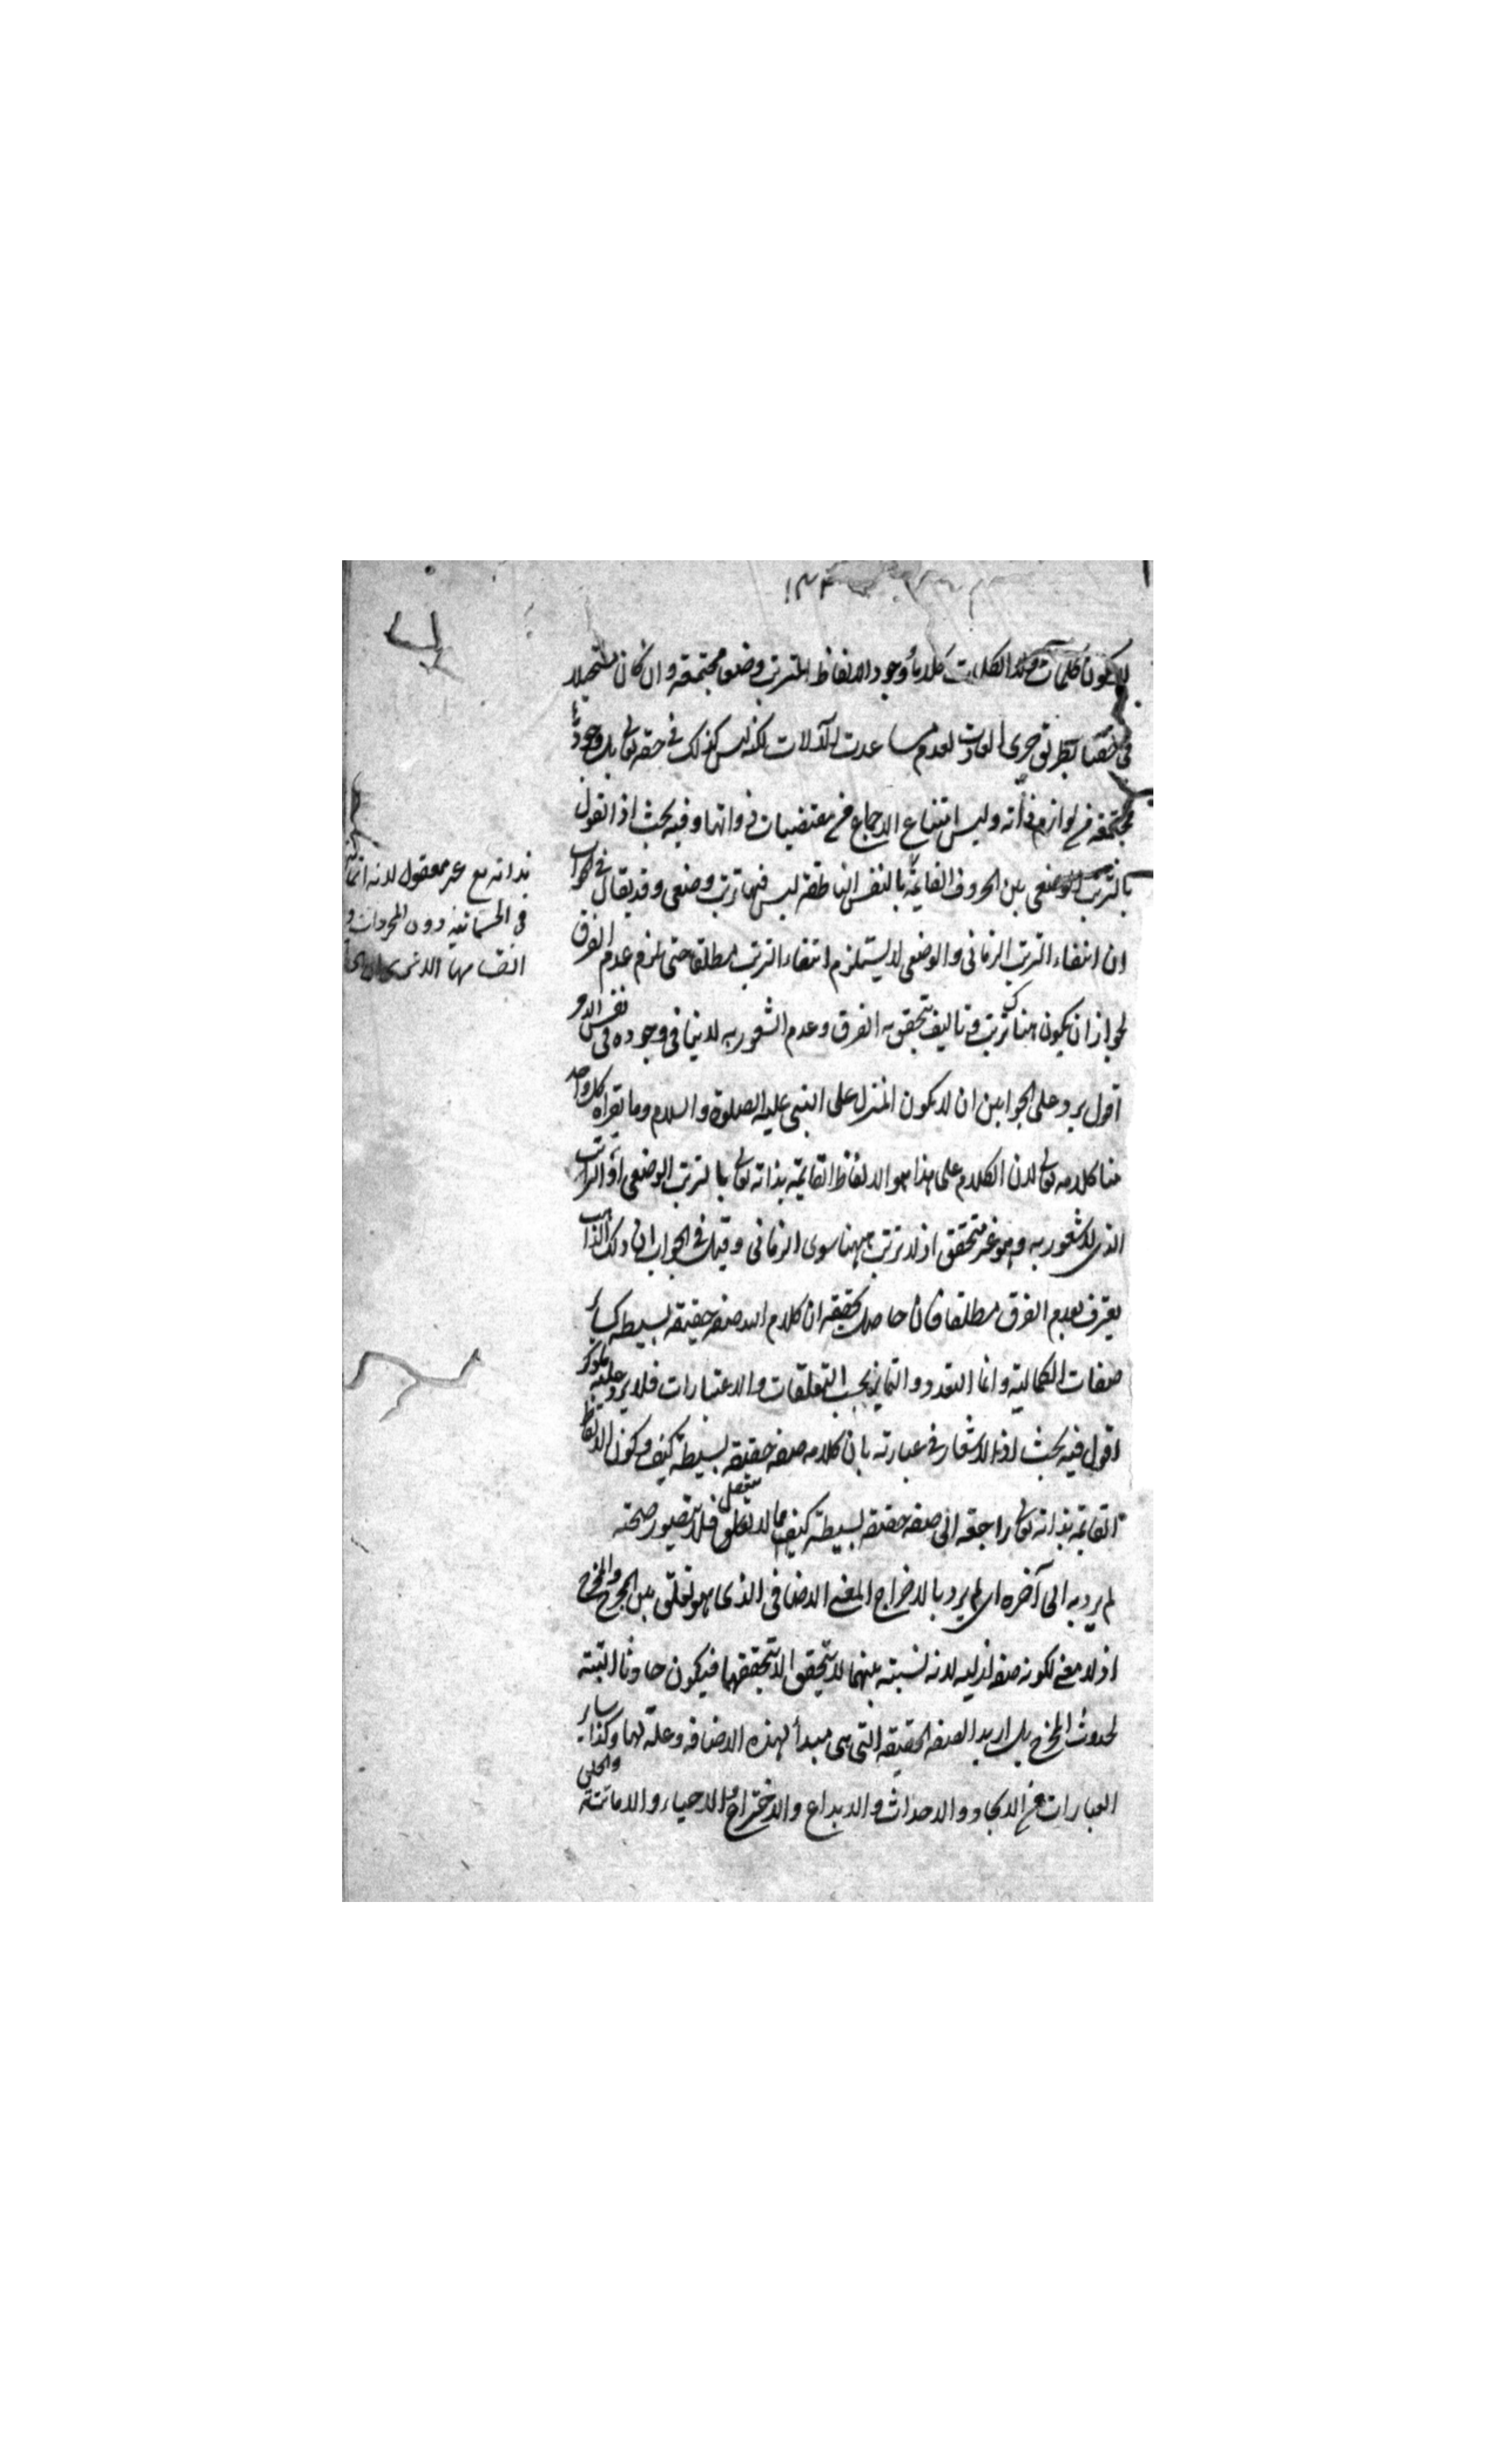 ١٣٤
لا يكون كلمات ولا الكلمات كلاما ووجود الالفاظ المترتب وضعا مجتمعة وان كان مستحيلا
في حقنا بطريق جرى العادة لعدم مساعدت الآلات لكنه ليس كذلك في حقه تعالى بل وجودها
مجتمعة من لوازم ذاته وليس امتناع الاجتماع من مقتضيات ذواتها وفيه بحث اذ القول
بالترتب الوضعي بين الحروف القايمة بالنفس الناطقة ليس فيها ترتب وضعي وقد يقال في الجواب
ان انتفاء الترتب الزماني والوضعي لا يستلزم انتفاء الترتب مطلقا حتى يلزم عدم الفرق
لجواز ان يكون هناك ترتب وتاليف يتحقق به الفرق وعدم الشعور به لا ينافي وجوده في نفس الامر
اقول يرد على الجوابين ان لا يكون المنزل على النبي عليه الصلوة والسلام وما يقراه كل واحد
منا كلامه تعالى لان الكلام على هذا هو الالفاظ القايمة بذاته تعالى بالترتب الوضعي او الترتب
الذي لا شعور به وهو غير متحقق اذ لا ترتب ههنا سوى الزماني وقيل في الجواب ان ذلك الذاهب
يعترف بعدم الفرق مطلقا فان حاصل تحقيقه ان كلام الله صفة حقيقة بسيطة كساير
صفات الكمالية وانما التعدد والتمايز بحسب التعلقات والاعتبارات فلا يرد عليه ما ذكر
اقول فيه بحث اذ لا اشعار في عبارته بان كلامه صفة حقيقة بسيطة كيف وكون الالفاظ
القايمة بذاته تعالى راجعة الى صفة حقيقة بسيطة كيف مما لا تعلق فلا يتصور صحته
لم يرد به الى آخره اي لم يرد بالاخراج المعنى الاضافي الذي هو تعلق بين المخرج والمخرج
اذ لا معنى لكونه صفة ازلية لانه نسبة بينهما لا يتحقق الا بتحققهما فيكون حادثا البتة
لحدوث المخرج بل اريد الصفة الحقيقة التي هي مبدأ لهذه الاضافة وعلة لها وكذا ساير
العبارات من الايجاد والاحداث والابداع والاختراع والاحياء والاماتة والخلق
بذاته مع غير معقول لانه انما
في الجسمانية دون المجردات و